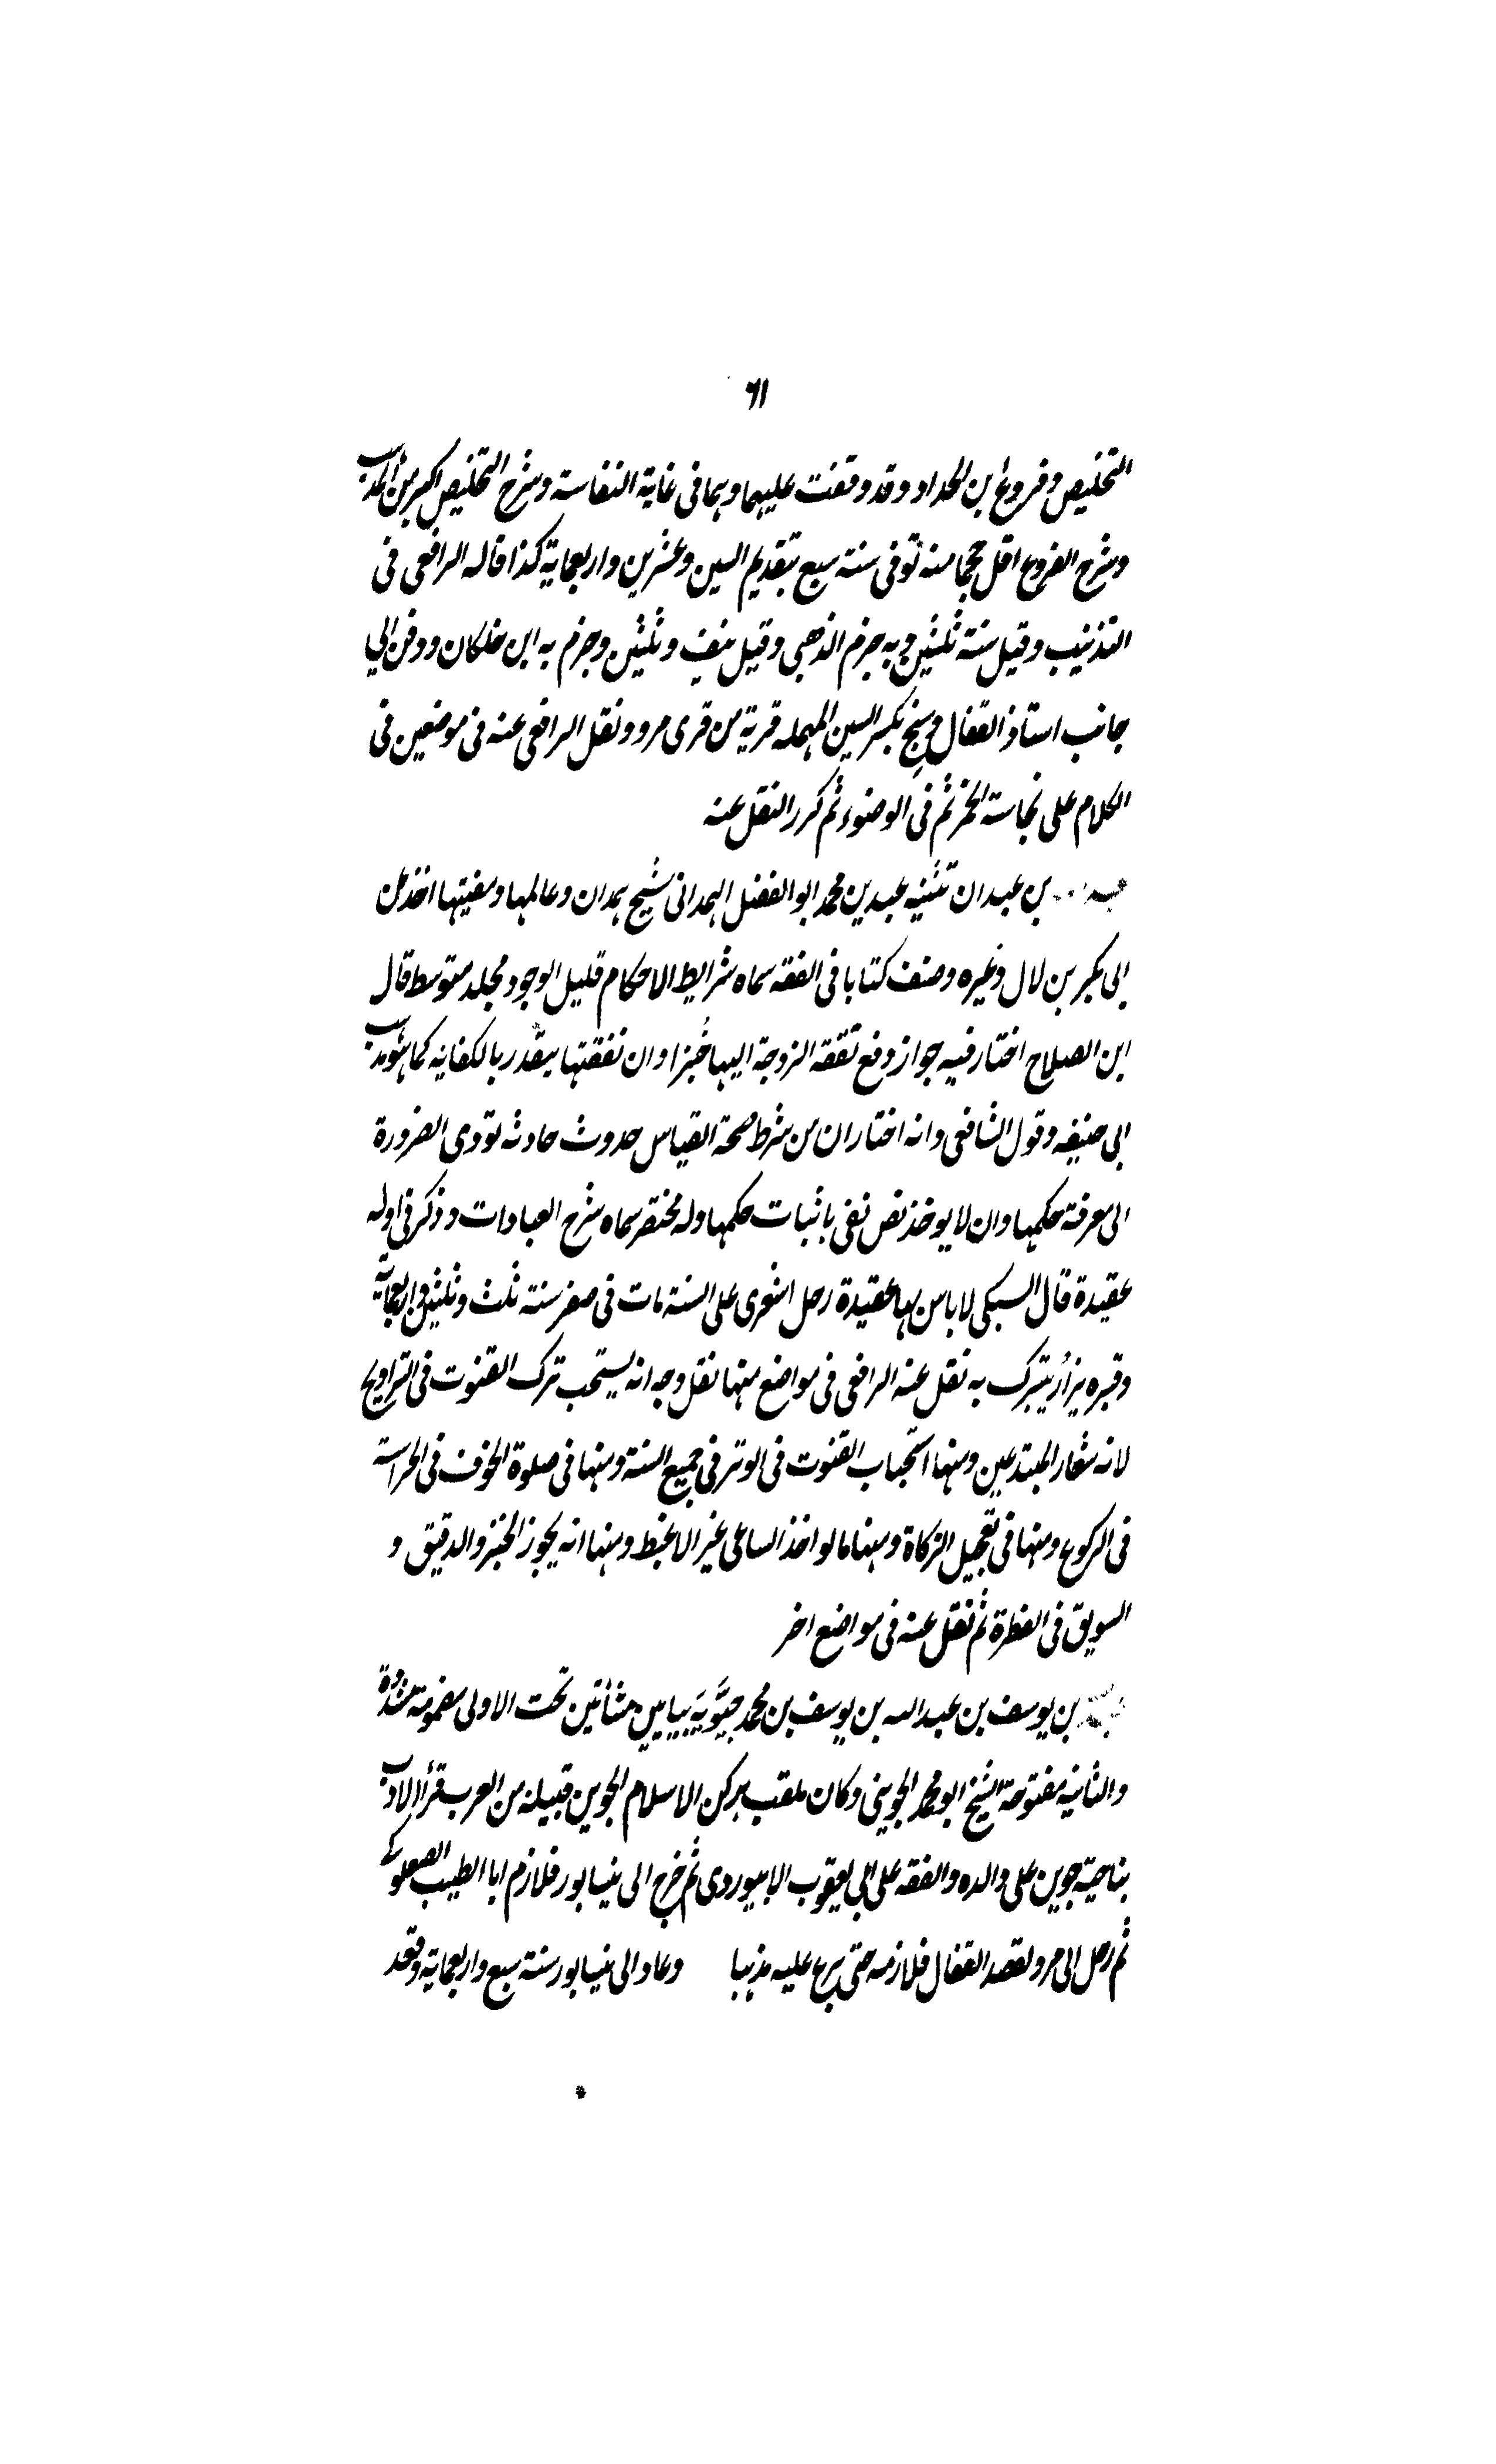 ٦١
التلخيص وفروع ابن الحداد وقد وقفت عليهما وهما في غاية النفاسة وشرح التلخيص اكبر من المهذب
وشرح الفروع اقل حجما منه توفي سنة سبع بتقديم السين وعشرين واربعماية كذا قاله الرافعي في
التذنيب وقيل سنة ثلثين وبه جزم الذهبي وقيل نيف وثلثين وجزم به ابن خلكان ودفن الي
جانب استاذ القفال وسنج بكسر السين المهمله قرية من قرى مرو ونقل الرافعي عنه في موضعين في
الكلام على نجاسة الخمر ثم في الوضوء ثم كرر النقل عنه
بن عبدان تثنيه عبد بن محمد ابو الفضل الهمداني شيخ همدان وعالمها ومفتيها اخذ عن
ابي بكر بن لال وغيره وصنف كتابا في الفقه سماه شرايط الاحكام قليل الوجود مجلد متوسط قال
ابن الصلاح اختار فيه جواز دفع نفقة الزوجة اليها خبزا وان نفقتها يتقدر بالكفايه كما هو مذهب
ابي حنيفه وقول الشافعي وانه اختار ان من شرط صحة القياس حدوث حادثه تؤدى الضرورة
الى معرفة حكمها وان لا يوخذ نص نفى باثبات حكمها وله مختصر سماه شرح العبادات وذكر في اوله
عقيدة قال السبكى لا باس بها عقيدة رجل اشعرى على السنة مات في صفر سنة ثلث وثلثين واربعماية
وقبره يزار يتبرك به نقل عنه الرافعي في مواضع منها نقل وجه انه يستحب ترك القنوت في التراويح
لانه شعار المبتدعين ومنها استحباب القنوت في الوتر في جميع السنة ومنها في صلوة الخوف في الحراسة
في الركوع ومنها في تعجيل الزكاة ومنها ما لو اخذ الساعي غير الاغبط ومنها انه يجوز الخبز والدقيق و
السويق في الفطرة ثم نقل عنه في مواضع اخر
بن يوسف بن عبدالله بن يوسف بن محمد حيويه بيايين مثناتين تحت الاولى مضمومة مشددة
والثانيه مفتوحة الشيخ ابو محمد الجويني وكان ملقب بركن الاسلام الجوين قبيله من العرب قرأ الادب
بناحية جوين على والده والفقه على ابي يعقوب الابيوردى ثم خرج الى نيسابور فلازم ابا الطيب الصعلوكي
ثم رحل الى مرو لقصد القفال فلازمه حتى برع عليه مذهبا وعاد الى نيسابور سنة سبع واربعماية وقعد